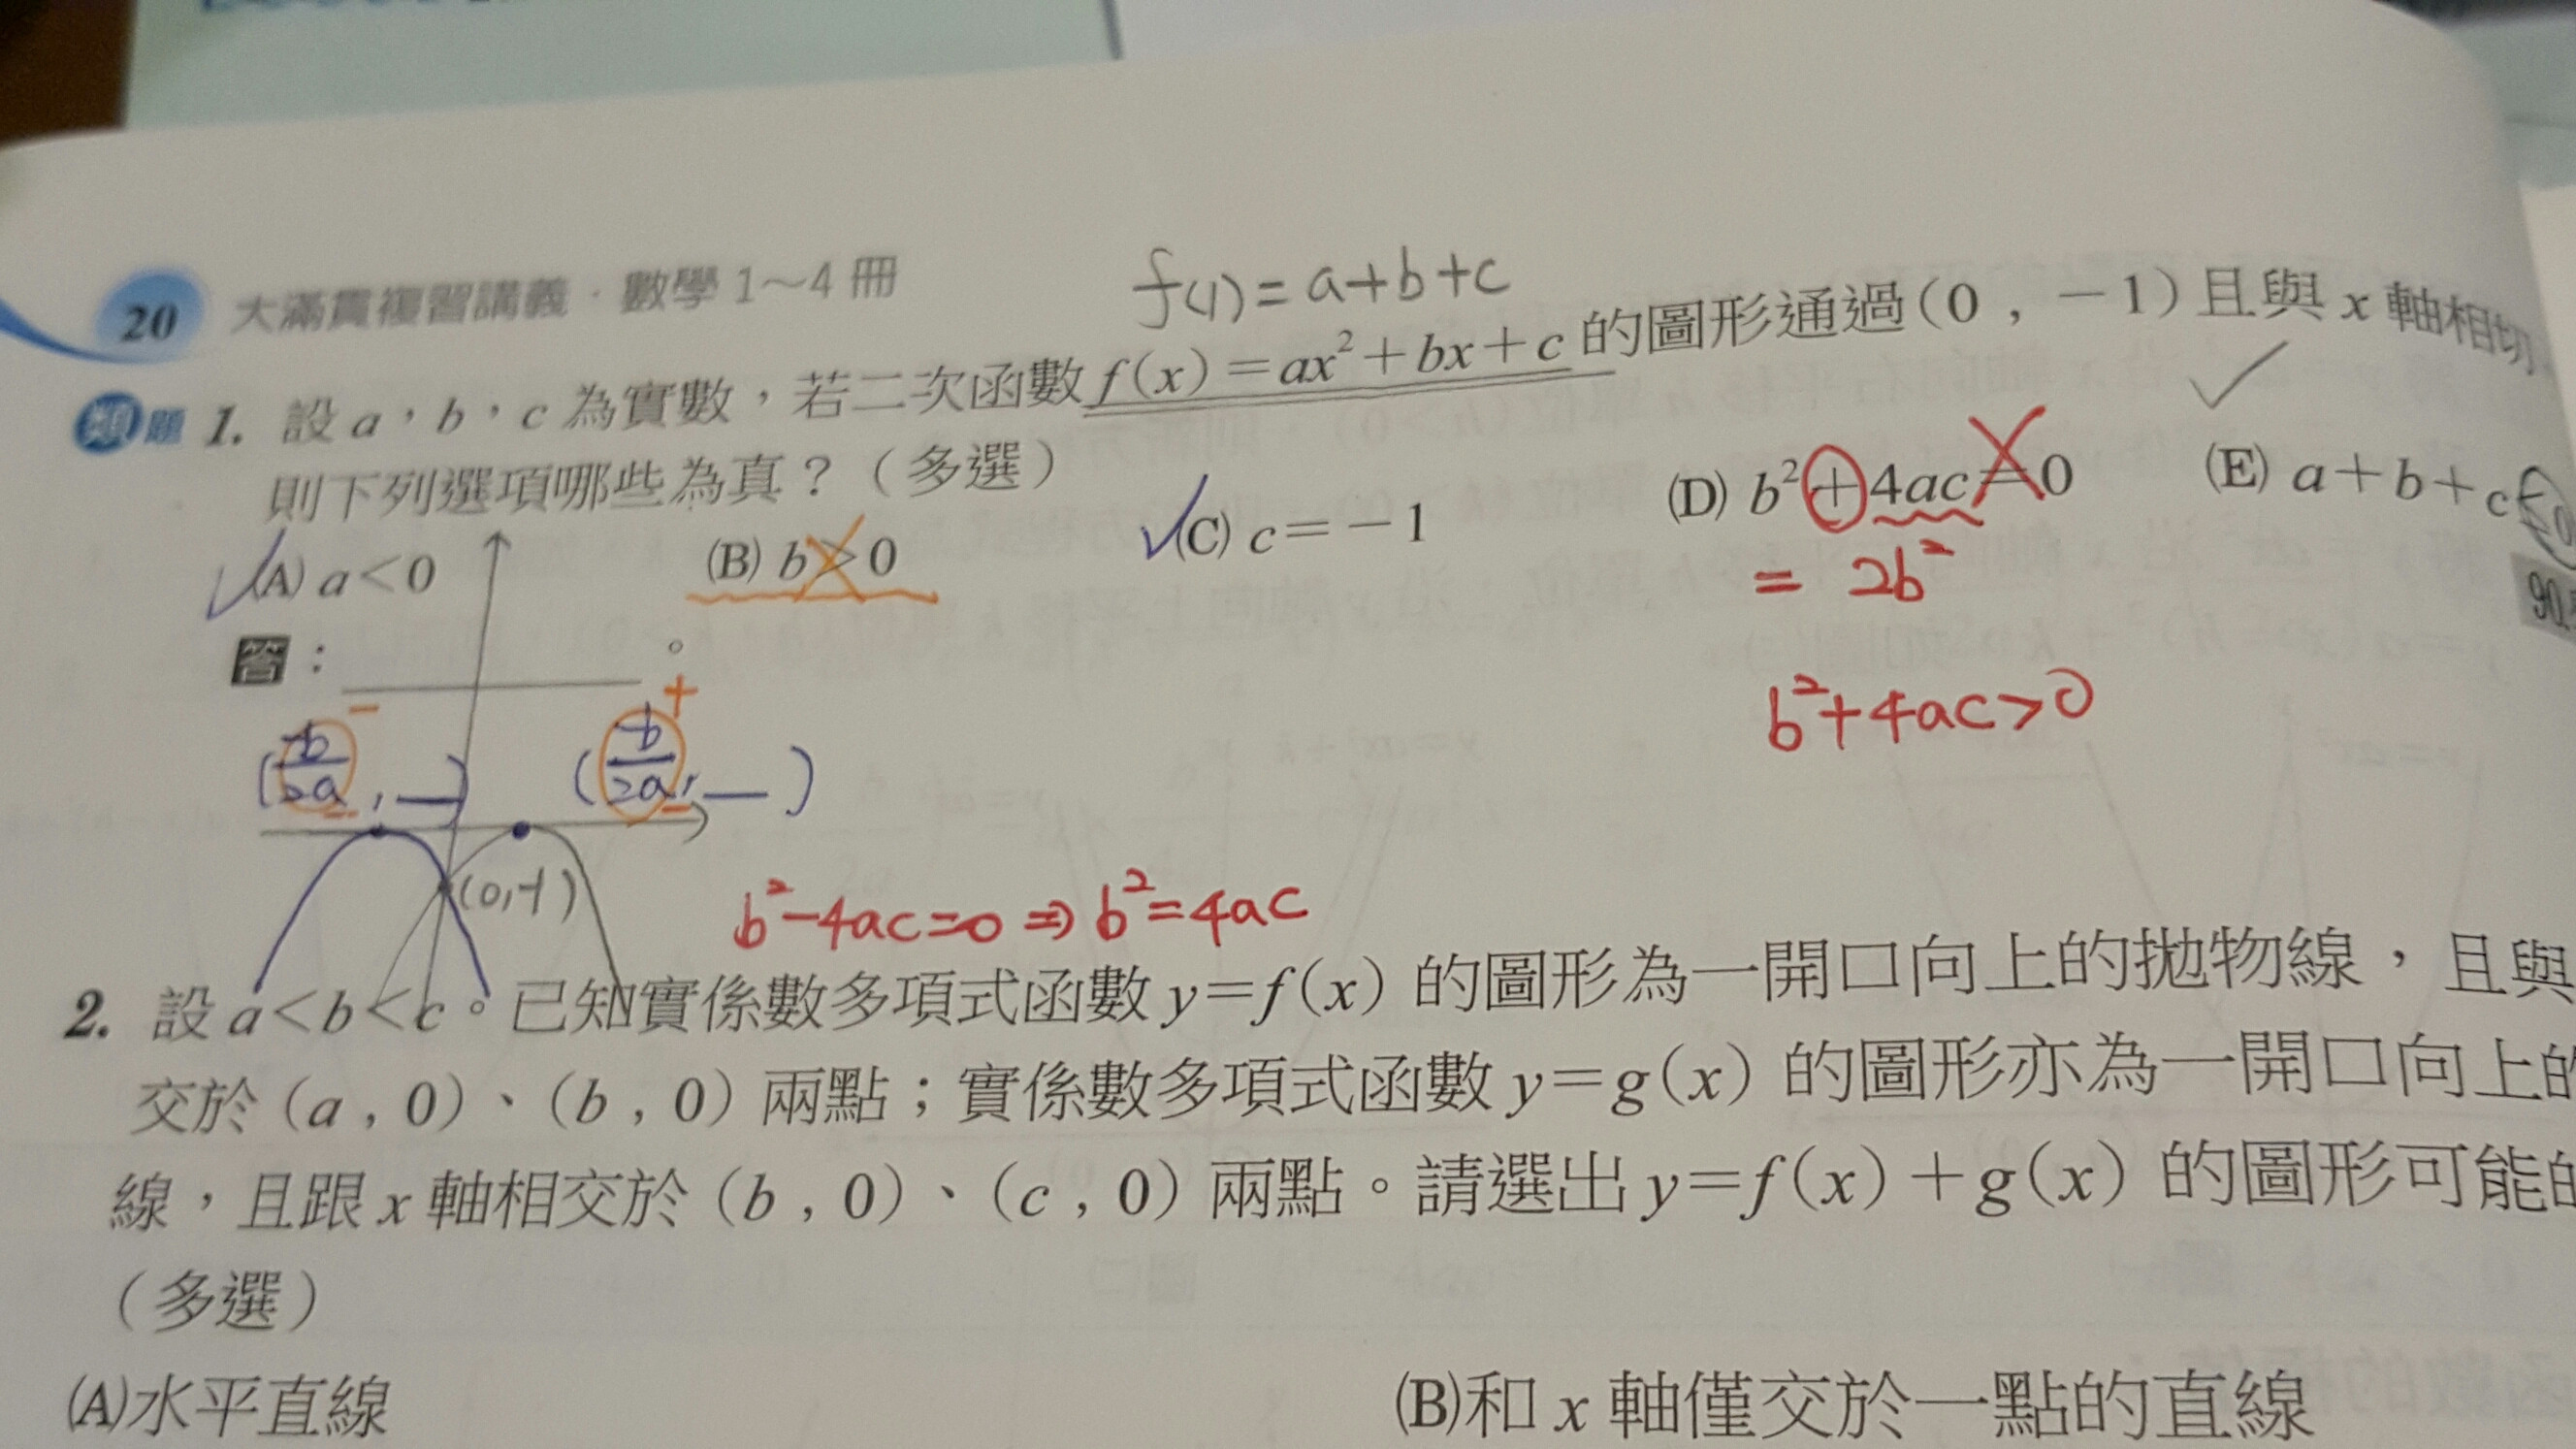 20 大滿貫複習講義．數學 1～4 冊
f(1)=a+b+c
類題 1. 設 a，b，c 為實數，若二次函數 f(x)=ax²+bx+c 的圖形通過(0，-1)且與 x 軸相切，
則下列選項哪些為真？（多選）
(A) a<0 (B) b>0 (C) c=-1 (D) b²+4ac=0 (E) a+b+c
= 2b²
答：　　　。
b²+4ac>0
- +
(-b/2a, __) (-b/2a, __)
- -
(0,-1)
b²-4ac=0 ⇒ b²=4ac
2. 設 a<b<c。已知實係數多項式函數 y=f(x) 的圖形為一開口向上的拋物線，且與
交於 (a，0)、(b，0) 兩點；實係數多項式函數 y=g(x) 的圖形亦為一開口向上的
線，且跟 x 軸相交於 (b，0)、(c，0) 兩點。請選出 y=f(x)+g(x) 的圖形可能的
（多選）
(A)水平直線 (B)和 x 軸僅交於一點的直線